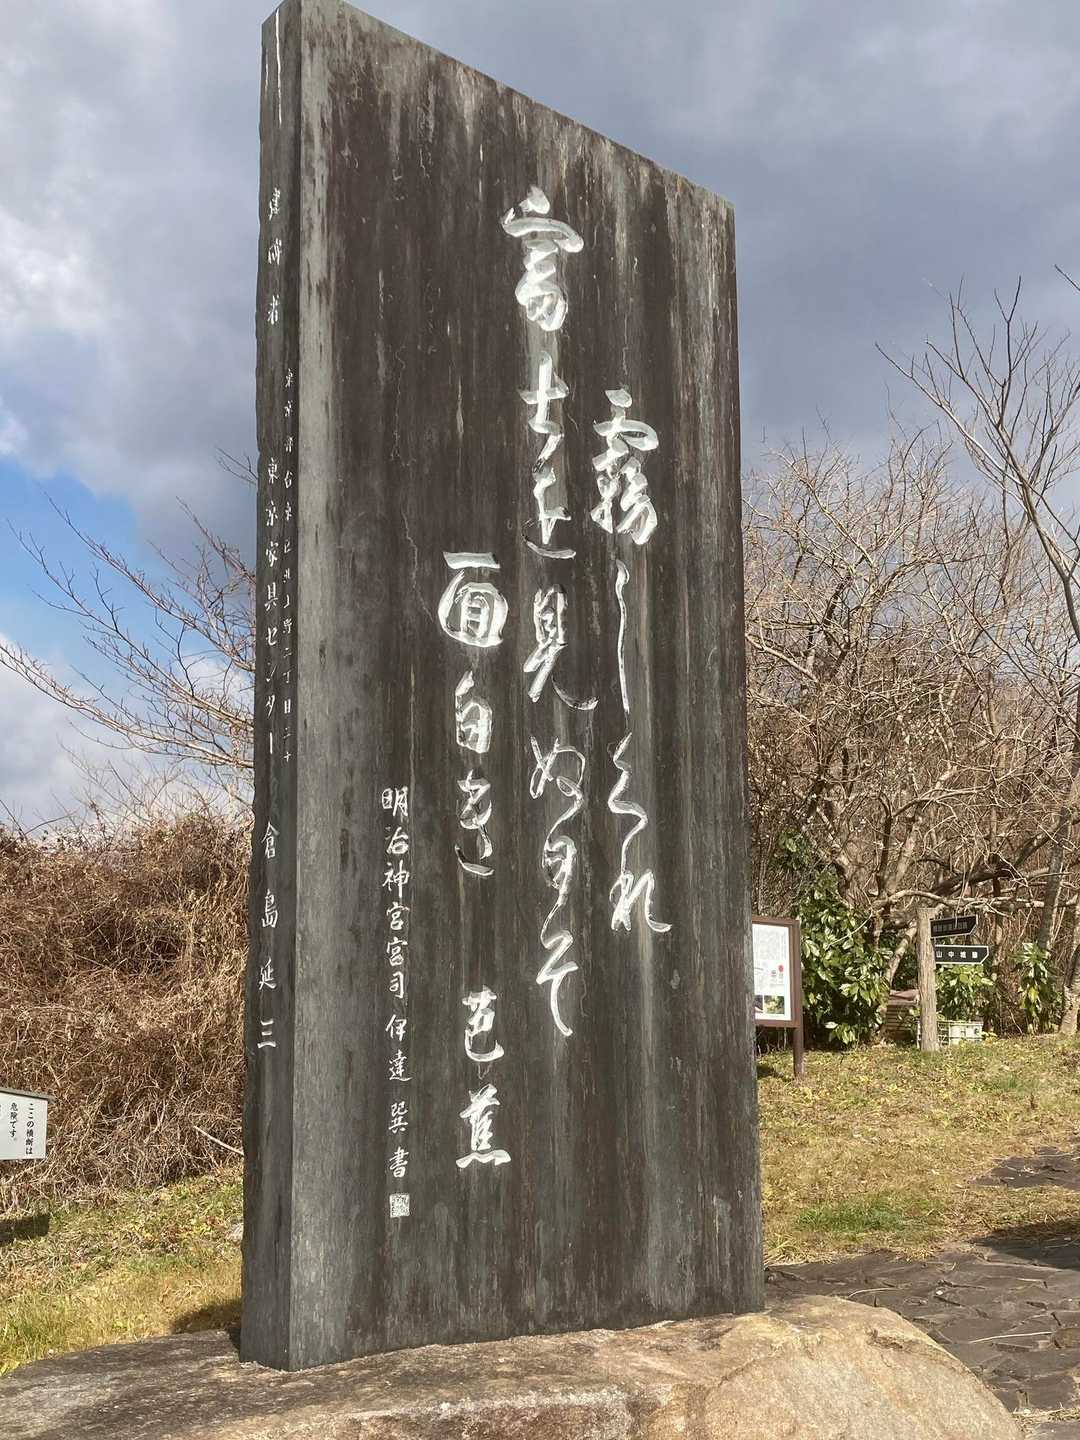 霧しくれ
富士を見ぬ日そ
面白き 芭蕉
明治神宮宮司 伊達 巽 書
東京都台東区上野二丁目二十
建碑者 東京家具センター 倉島延三
山中城跡
ここの横断は
危険です。